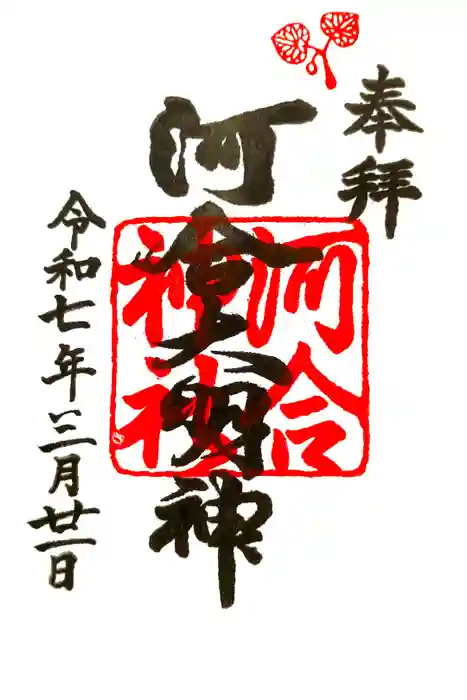 奉拝
河會大明神
河合
神社
令和七年三月廿一日